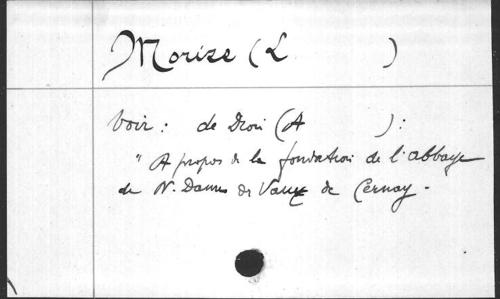 Morize (L        )
Voir : de Dion (A        ) :
" A propos de la fondation de l'abbaye
de N. Dame de Vaux de Cernay -